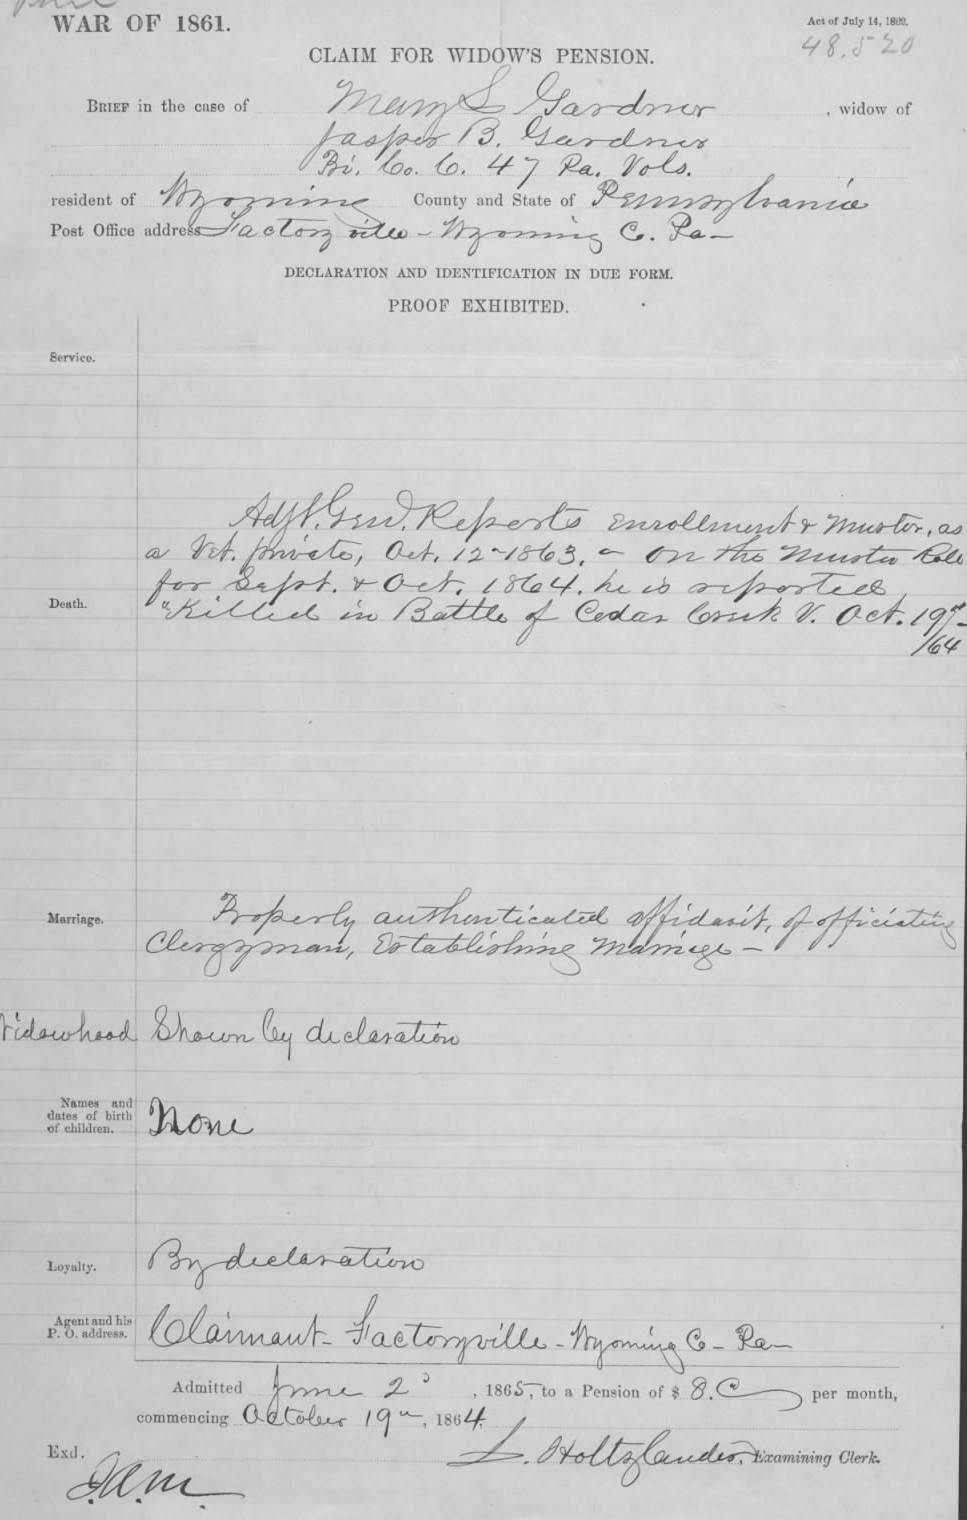 WAR OF 1861.
Act of July 14, 1862.
48,520
CLAIM FOR WIDOW'S PENSION.
BRIEF in the case of Mary S Gardner, widow of
Jasper B. Gardner
Co. C. 47 Pa. Vols.
resident of Wyoming County and State of Pennsylvania
Post Office address Factoryville - Wyoming Co. Pa -
DECLARATION AND IDENTIFICATION IN DUE FORM.
PROOF EXHIBITED.
Service.
Adjt. Genl. Reports enrollment & muster, as
a Vet. private, Oct. 12 - 1863, - on the Muster Roll
for Sept. & Oct. 1864. he is reported
Death. "Killed in Battle of Cedar Creek V. Oct. 19th -
/64
Marriage. Properly authenticated affidavit, of officiating
Clergyman, Establishing Marriage -
Widowhood Shown by declaration
Names and dates of birth of children. None
Loyalty. By declaration
Agent and his P. O. address. Claimant - Factoryville - Wyoming Co - Pa -
Admitted June 2d, 1865, to a Pension of $ 8. per month,
commencing October 19th, 1864.
Exd. Holtzlander, Examining Clerk.
J.A.M.